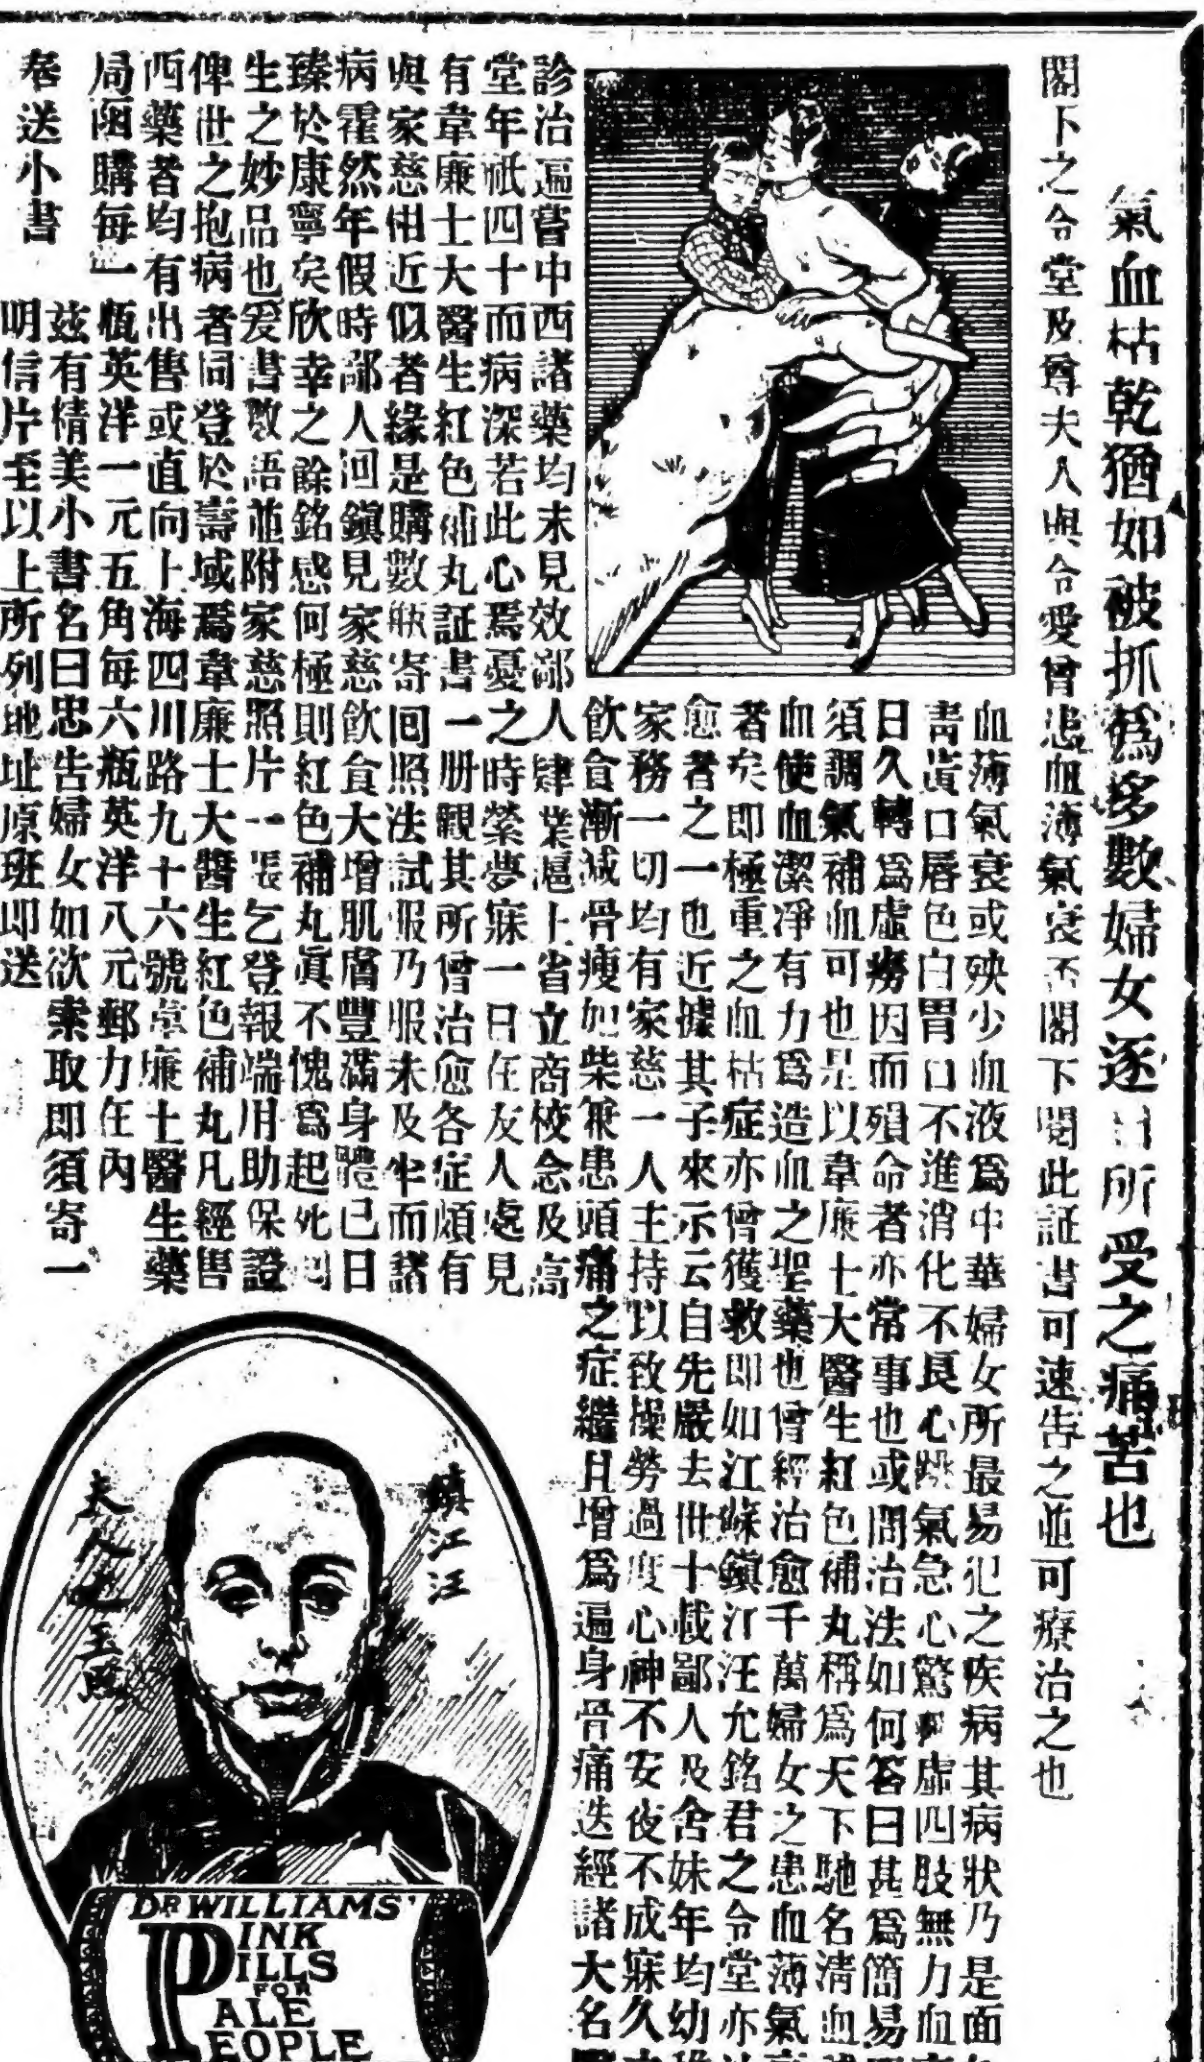 氣血枯乾猶如被抓爲多數婦女逐日所受之痛苦也
閣下之令堂及尊夫人與令愛曾患血薄氣衰否閣下閱此証書可速告之並可療治之也
血薄氣衰或殃少血液爲中華婦女所最易犯之疾病其病狀乃是面
靑黃口唇色白胃口不進消化不良心跳氣急心驚胆虛四肢無力血
日久轉爲虛癆因而殞命者亦常事也或問治法如何答曰甚爲簡易
須調氣補血可也是以韋廉士大醫生紅色補丸稱爲天下馳名淸血
血使血潔淨有力爲造血之聖藥也曾經治愈千萬婦女之患血薄氣
者矣即極重之血枯症亦曾獲救即如江蘇鎭江汪允銘君之令堂亦
愈者之一也近據其子來示云自先嚴去世十載鄙人及舍妹年均幼
家務一切均有家慈一人主持以致操勞過度心神不安夜不成寐久
飲食漸減骨瘦如柴兼患頭痛之症繼且增爲遍身骨痛迭經諸大名
診治遍嘗中西諸藥均未見效鄙人肄業滬上省立商校念及高
堂年祇四十而病深若此心焉憂之時縈夢寐一日在友人處見
有韋廉士大醫生紅色補丸証書一册觀其所曾治愈各症頗有
與家慈相近似者緣是購數瓶寄回照法試服乃服未及半而諸
病霍然年假時鄙人回鎭見家慈飲食大增肌膚豐滿身體已日
臻於康寧矣欣幸之餘銘感何極則紅色補丸眞不愧爲起死
生之妙品也爰書數語並附家慈照片一張乞登報端用助保證
俾世之抱病者同登於壽域焉韋廉士大醫生紅色補丸凡經售
西藥者均有出售或直向上海四川路九十六號韋廉士醫生藥
局函購每一瓶英洋一元五角每六瓶英洋八元郵力在內
奉送小書
茲有精美小書名曰忠告婦女如欲索取即須寄一
明信片至以上所列地址原班即送
鎭江汪
夫人玉照
DR WILLIAMS'
PINK
PILLS
FOR
PALE
PEOPLE